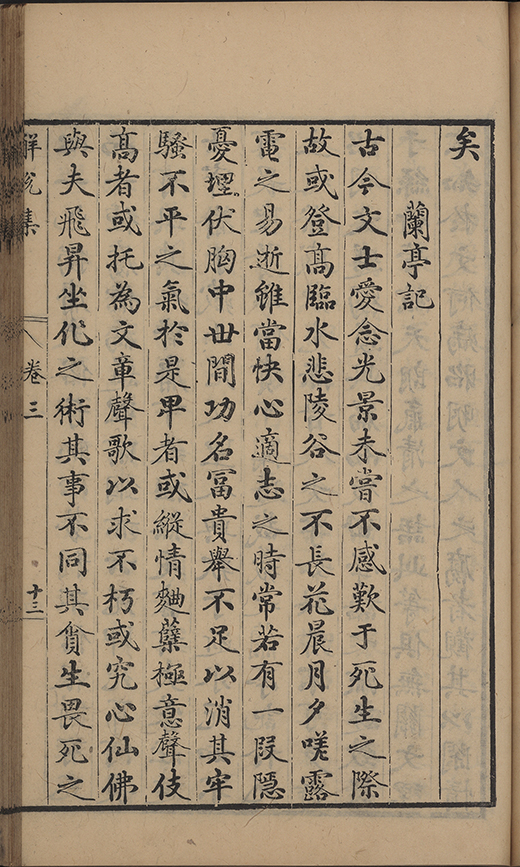 矣
蘭亭記
古今文士愛念光景未嘗不感歎于死生之際
故或登髙臨水悲陵谷之不長花晨月夕嗟露
電之易逝雖當快心適志之時常若有一叚隱
憂埋伏胸中丗間功名冨貴舉不足以消其牢
騷不平之氣於是卑者或縱情麯蘖極意聲伎
髙者或托為文章聲歌以求不朽或究心仙佛
與夫飛昇坐化之術其事不同其貪生畏死之
解脫集
卷三
十三